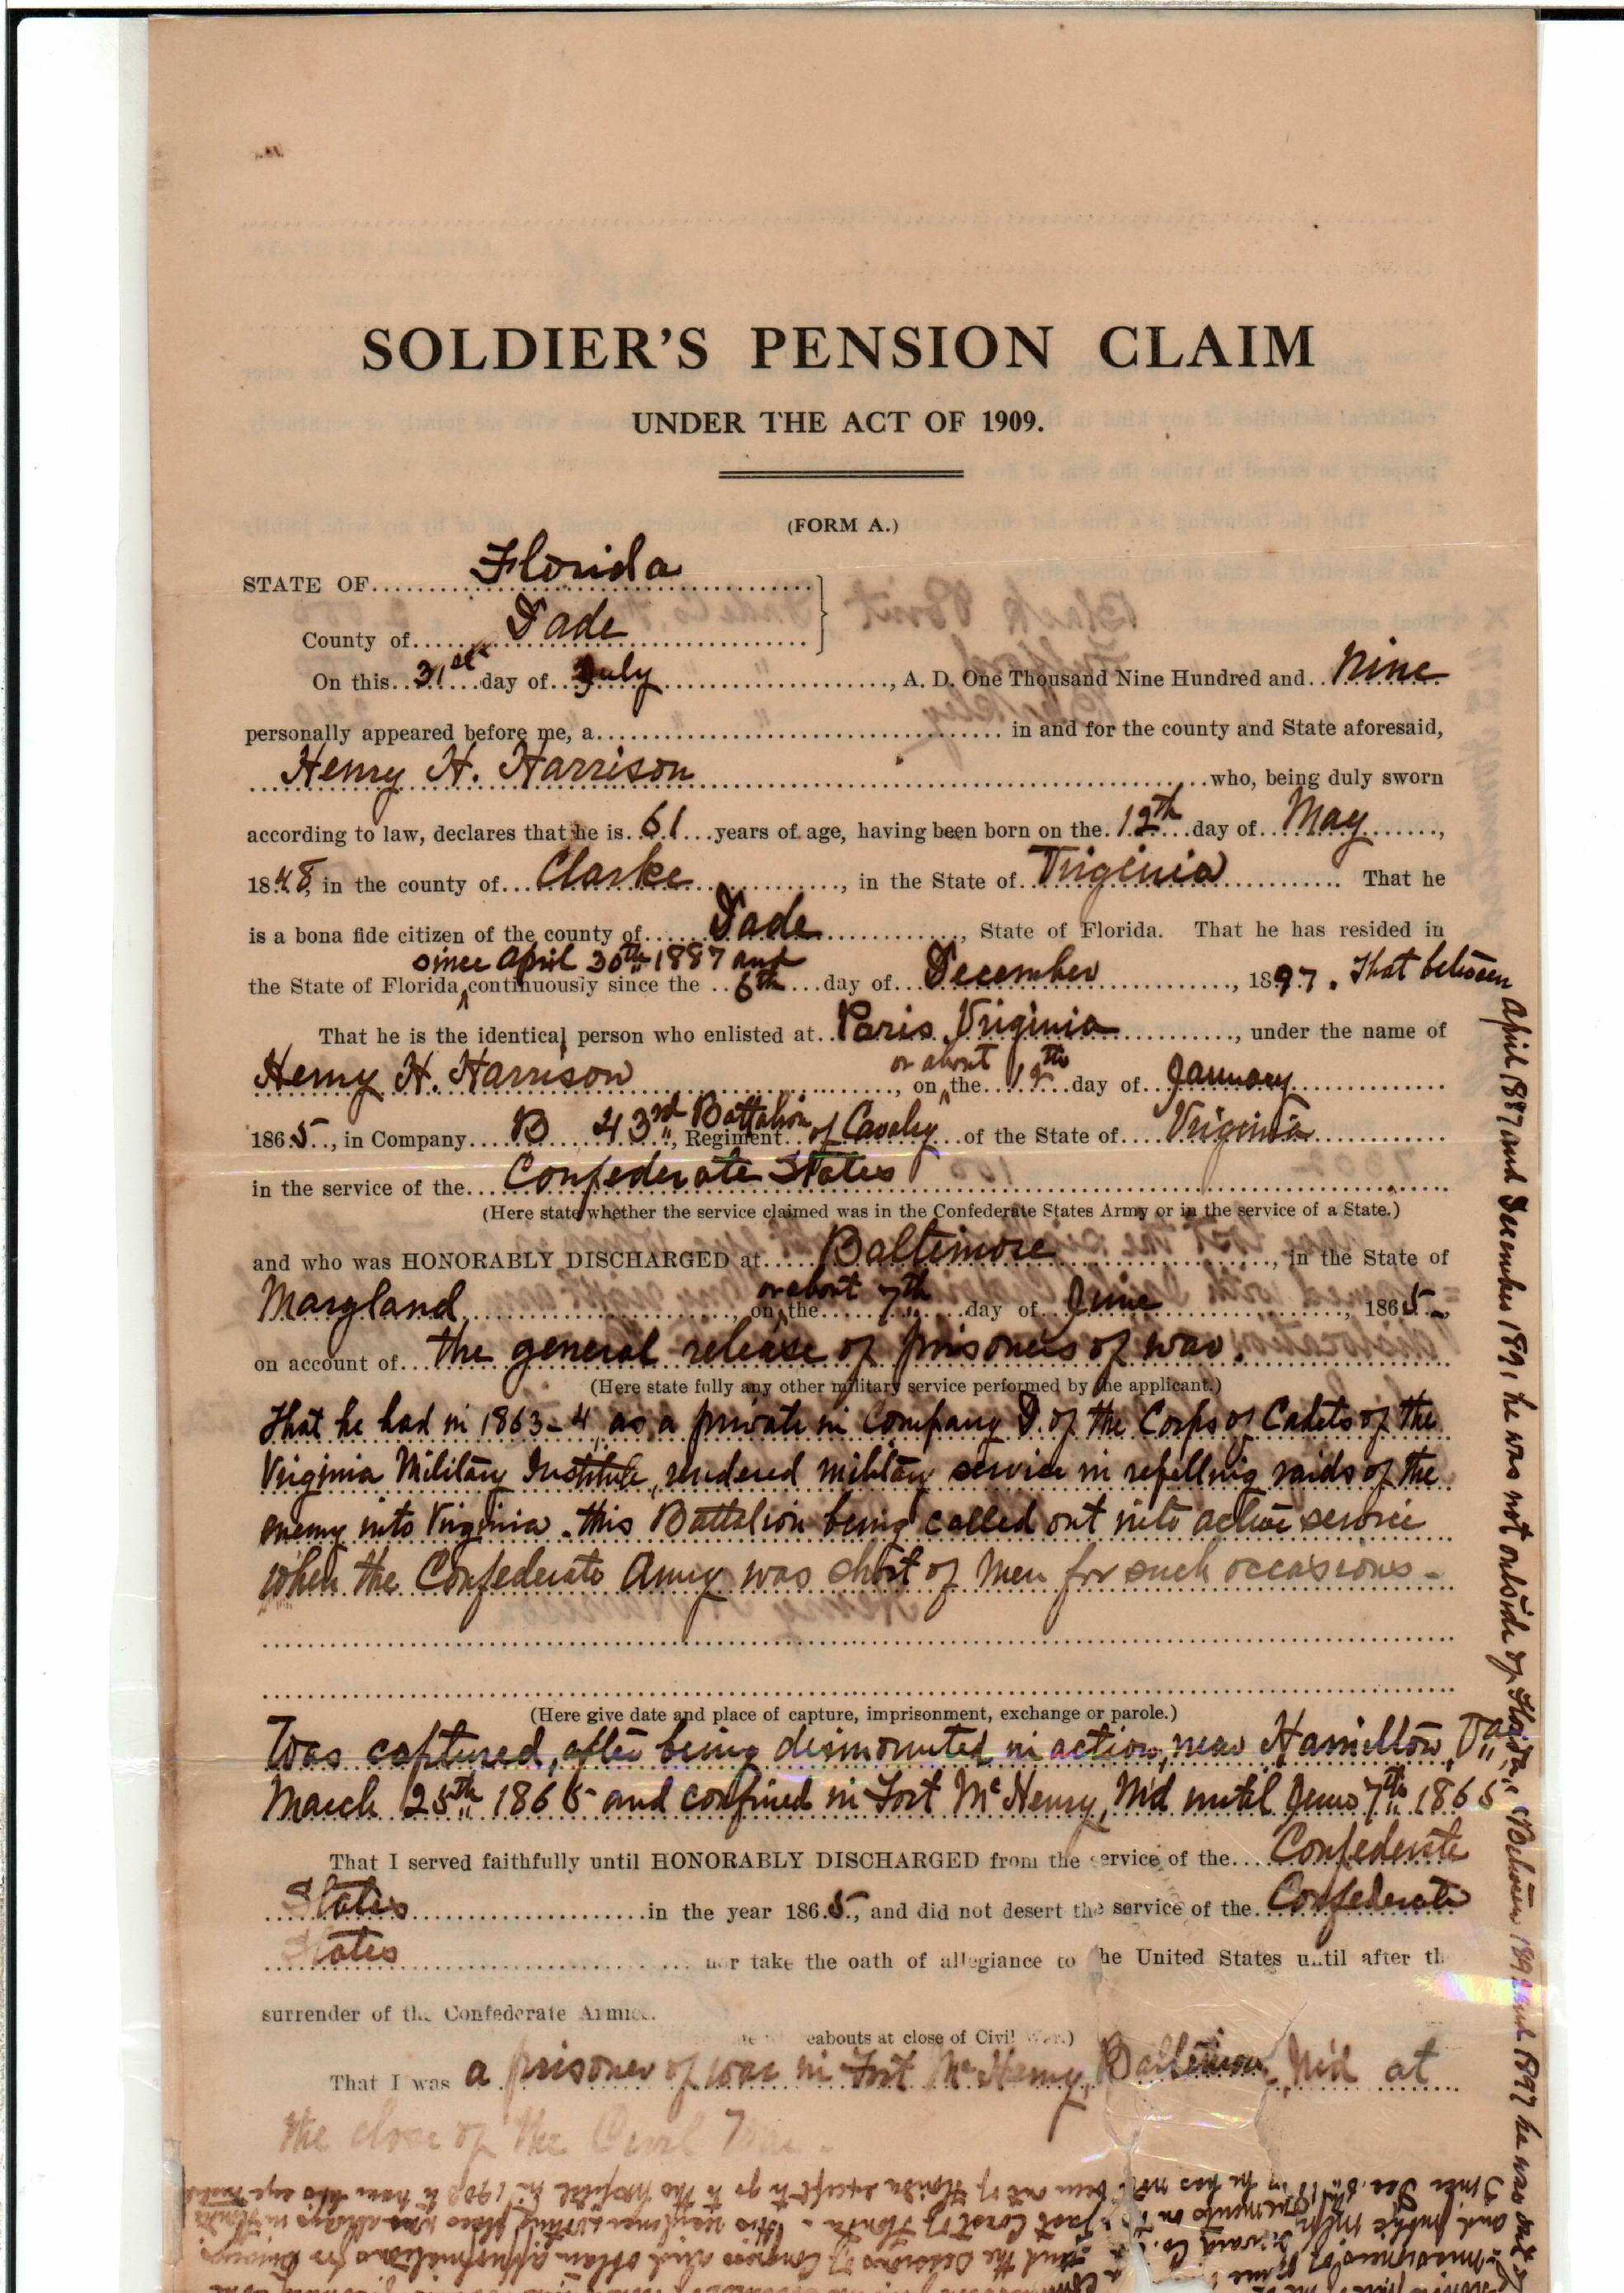 SOLDIER'S PENSION CLAIM
UNDER THE ACT OF 1909.
(FORM A.)
STATE OF Florida
County of Dade
On this 31st day of July, A. D. One Thousand Nine Hundred and Nine
personally appeared before me, a in and for the county and State aforesaid,
Henry H. Harrison who, being duly sworn
according to law, declares that he is 61 years of age, having been born on the 12th day of May,
1848, in the county of Clarke, in the State of Virginia. That he
is a bona fide citizen of the county of Dade, State of Florida. That he has resided in
since April 30th 1887 and
the State of Florida continuously since the 6th day of December, 1897. That between
That he is the identical person who enlisted at Paris, Virginia, under the name of
or about
Henry H. Harrison, on the 12th day of January
1865, in Company B 43rd Battalion, Regiment of Cavalry of the State of Virginia
in the service of the Confederate States
(Here state whether the service claimed was in the Confederate States Army or in the service of a State.)
and who was HONORABLY DISCHARGED at Baltimore, in the State of
or about
Maryland, on the 7th day of June, 1865,
on account of the general release of prisoners of war.
(Here state fully any other military service performed by the applicant.)
That he had in 1863-4, as a private in Company D. of the Corps of Cadets of the
Virginia Military Institute, rendered military service in repelling raids of the
enemy into Virginia. this Battalion being called out into active service
when the Confederate Army was short of men for such occasions -
(Here give date and place of capture, imprisonment, exchange or parole.)
Was captured, after being dismounted in action, near Hamilton, Va
March 25th 1865 and confined in Fort McHenry, Md until June 7th 1865
That I served faithfully until HONORABLY DISCHARGED from the service of the Confederate
States in the year 1865, and did not desert the service of the Confederate
States nor take the oath of allegiance to the United States until after th
surrender of the Confederate Armies.
eabouts at close of Civil War.)
That I was a prisoner of war in Fort McHenry, Baltimore, Md at
the close of the Civil War.
April 1887 and December 1891 he was not outside of Florida. Between 1892 and 1897 he was out
Since Dec. 6th, 1897 he has not been out of Florida except to go to the hospital in 1908 to have his eye
East Coast of Florida - His was always in Florida
and the sessions of Congress and obtain appropriations for